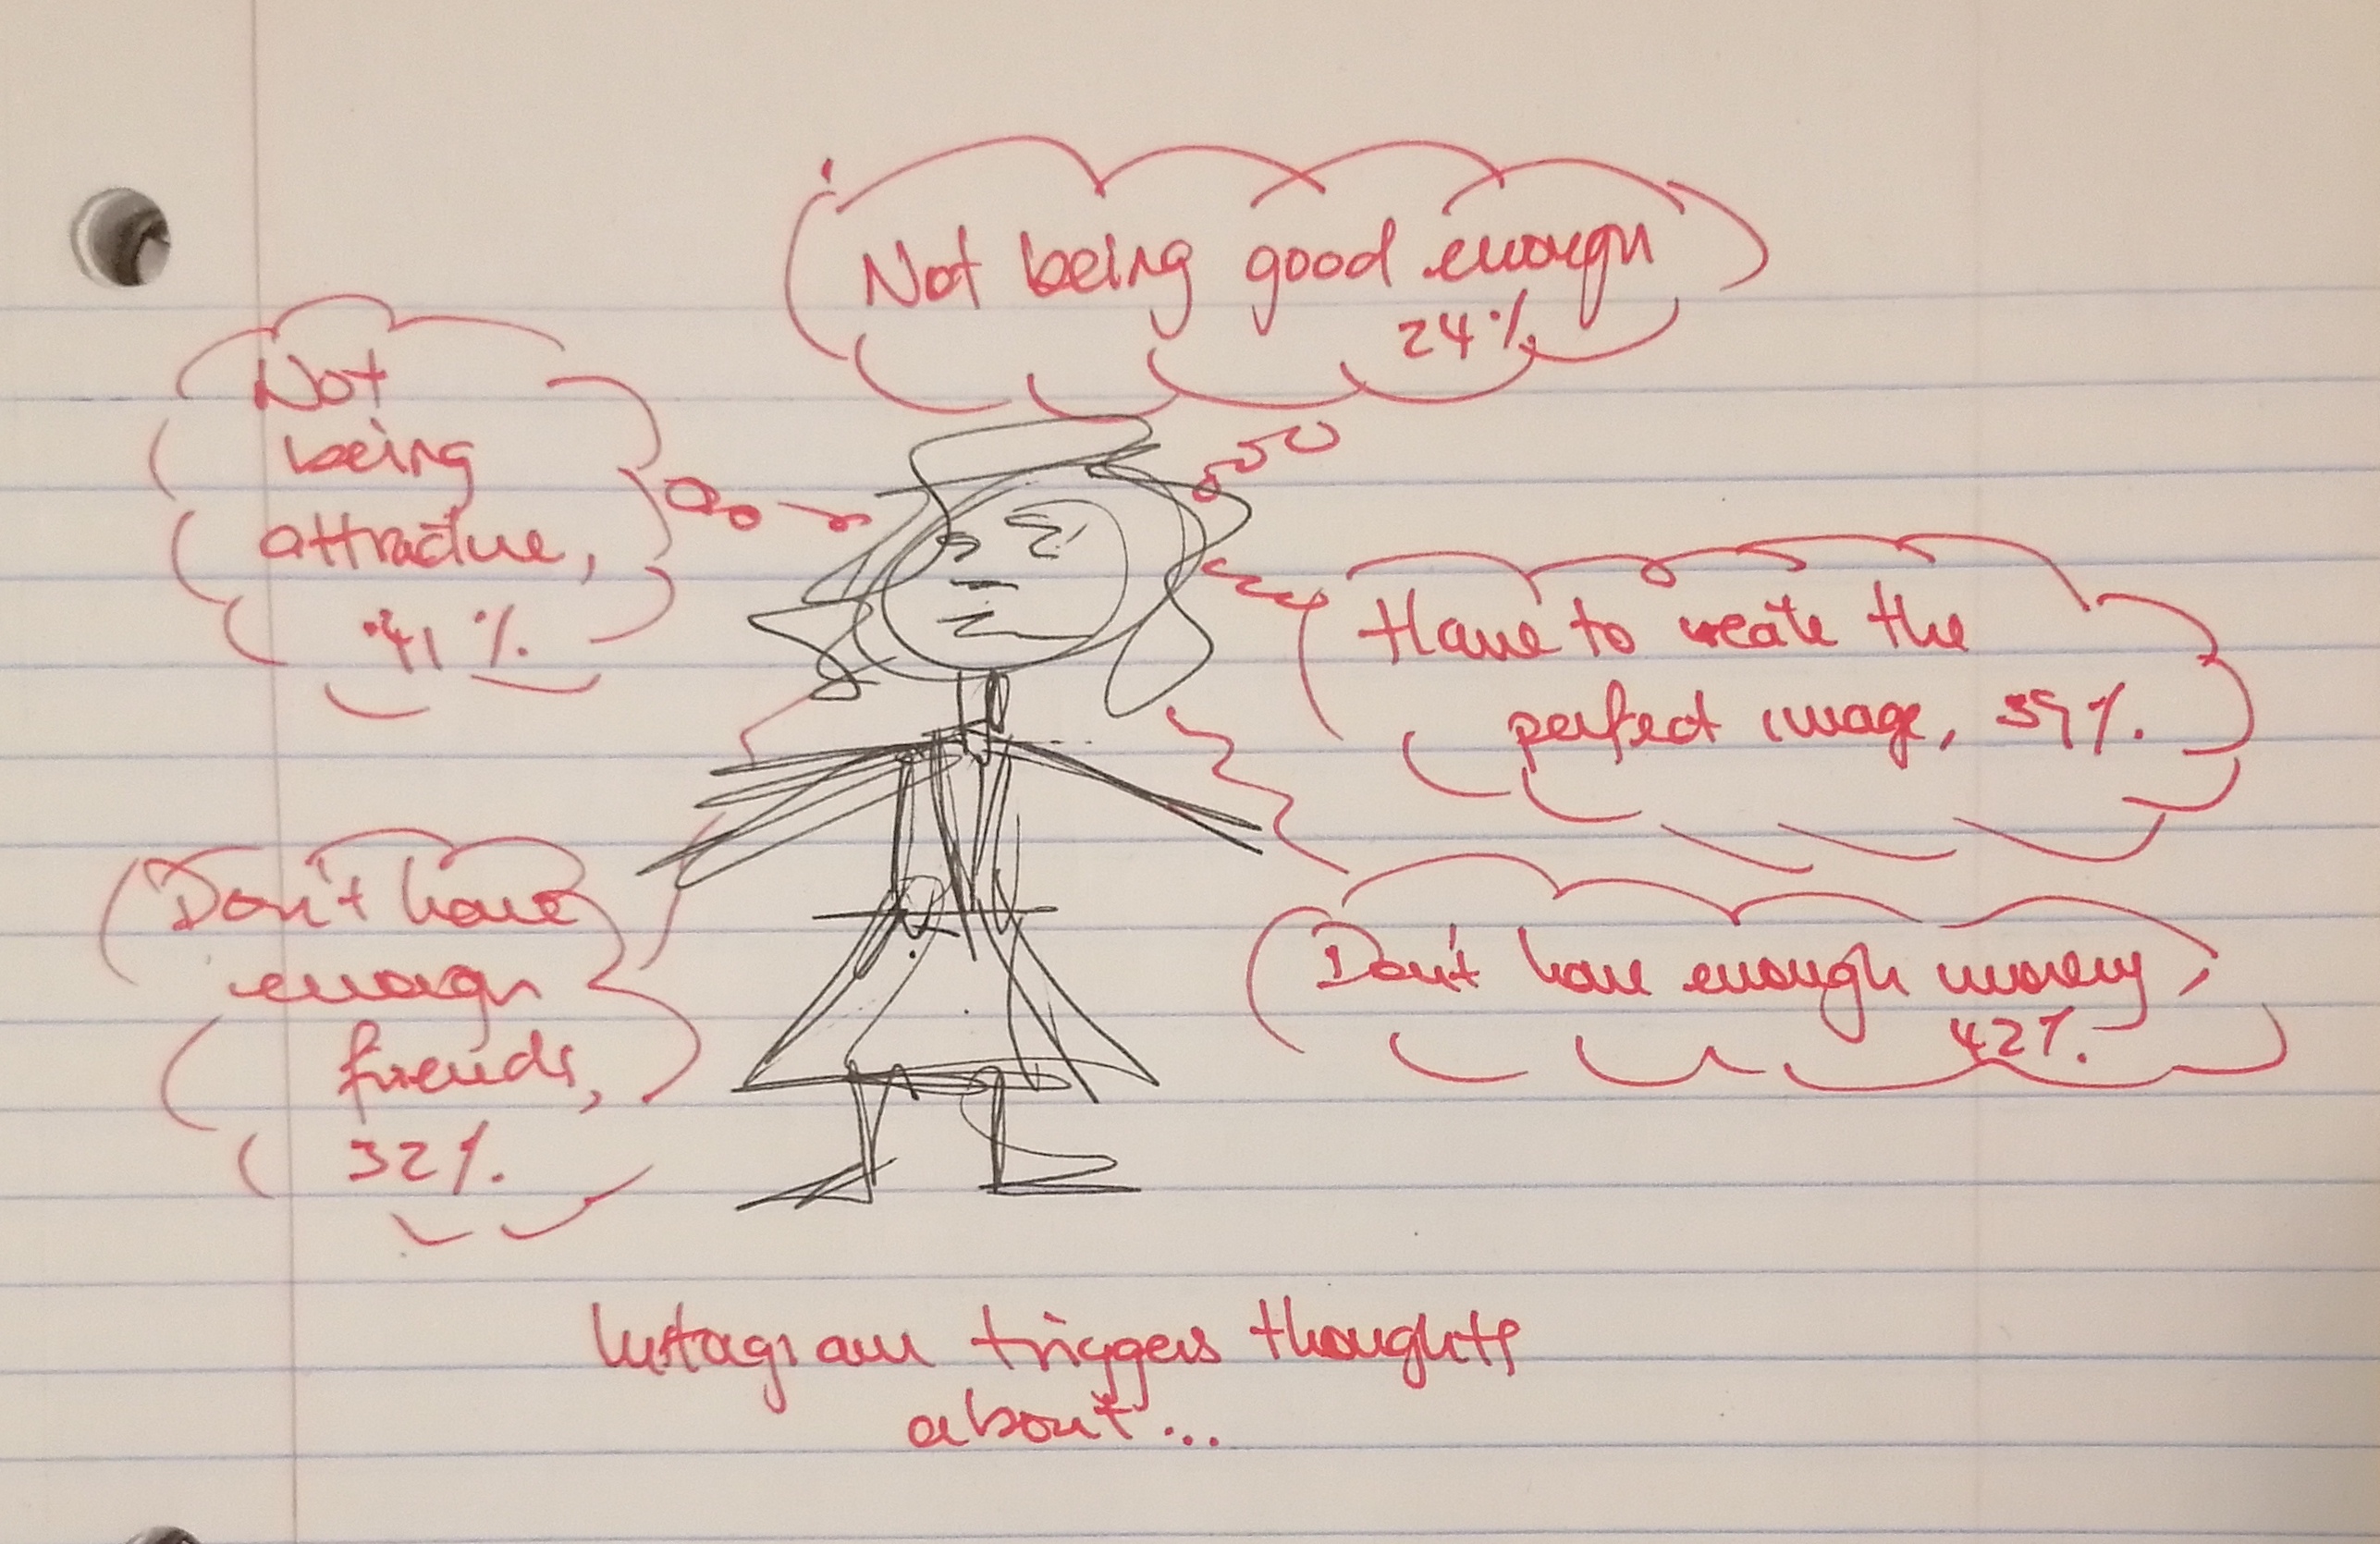 Not being good enough
24%
Not
being
attractive,
41%
Have to create the
perfect image, 39%.
Don't have
enough
friends,
32%.
Don't have enough money,
42%.
Instagram triggers thoughts
about...